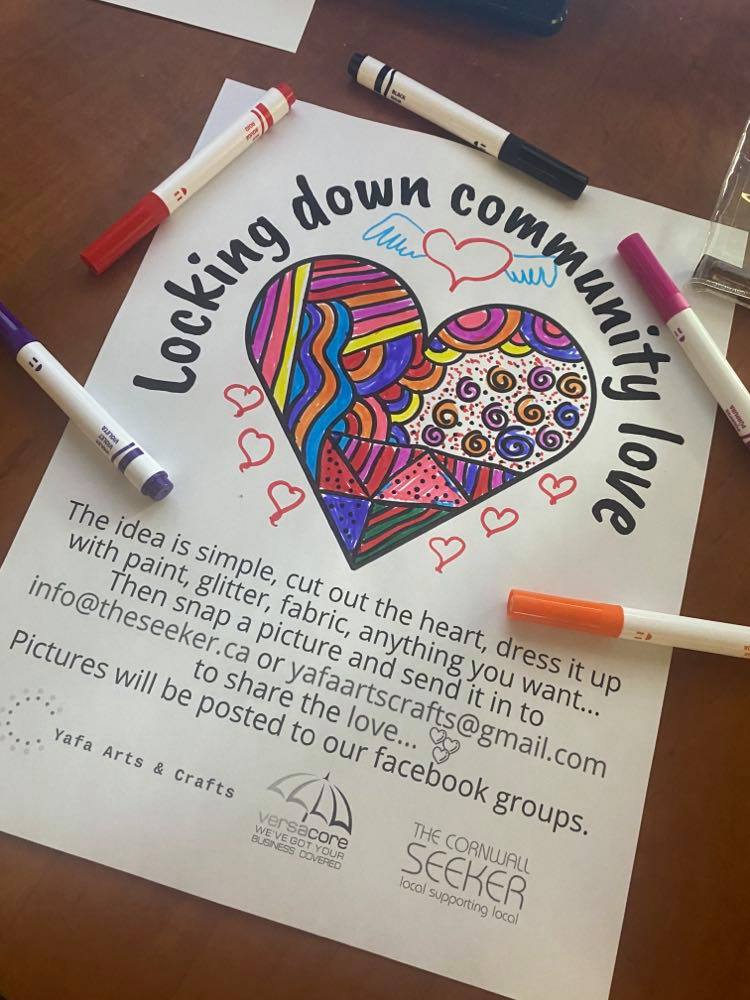 Locking down community love
The idea is simple, cut out the heart, dress it up
with paint, glitter, fabric, anything you want...
Then snap a picture and send it in to
info@theseeker.ca or yafaartscrafts@gmail.com
to share the love...
Pictures will be posted to our facebook groups.
Yafa Arts & Crafts
versacore
WE'VE GOT YOUR
BUSINESS COVERED
THE CORNWALL
SEEKER
local supporting local
BLACK
VIOLET